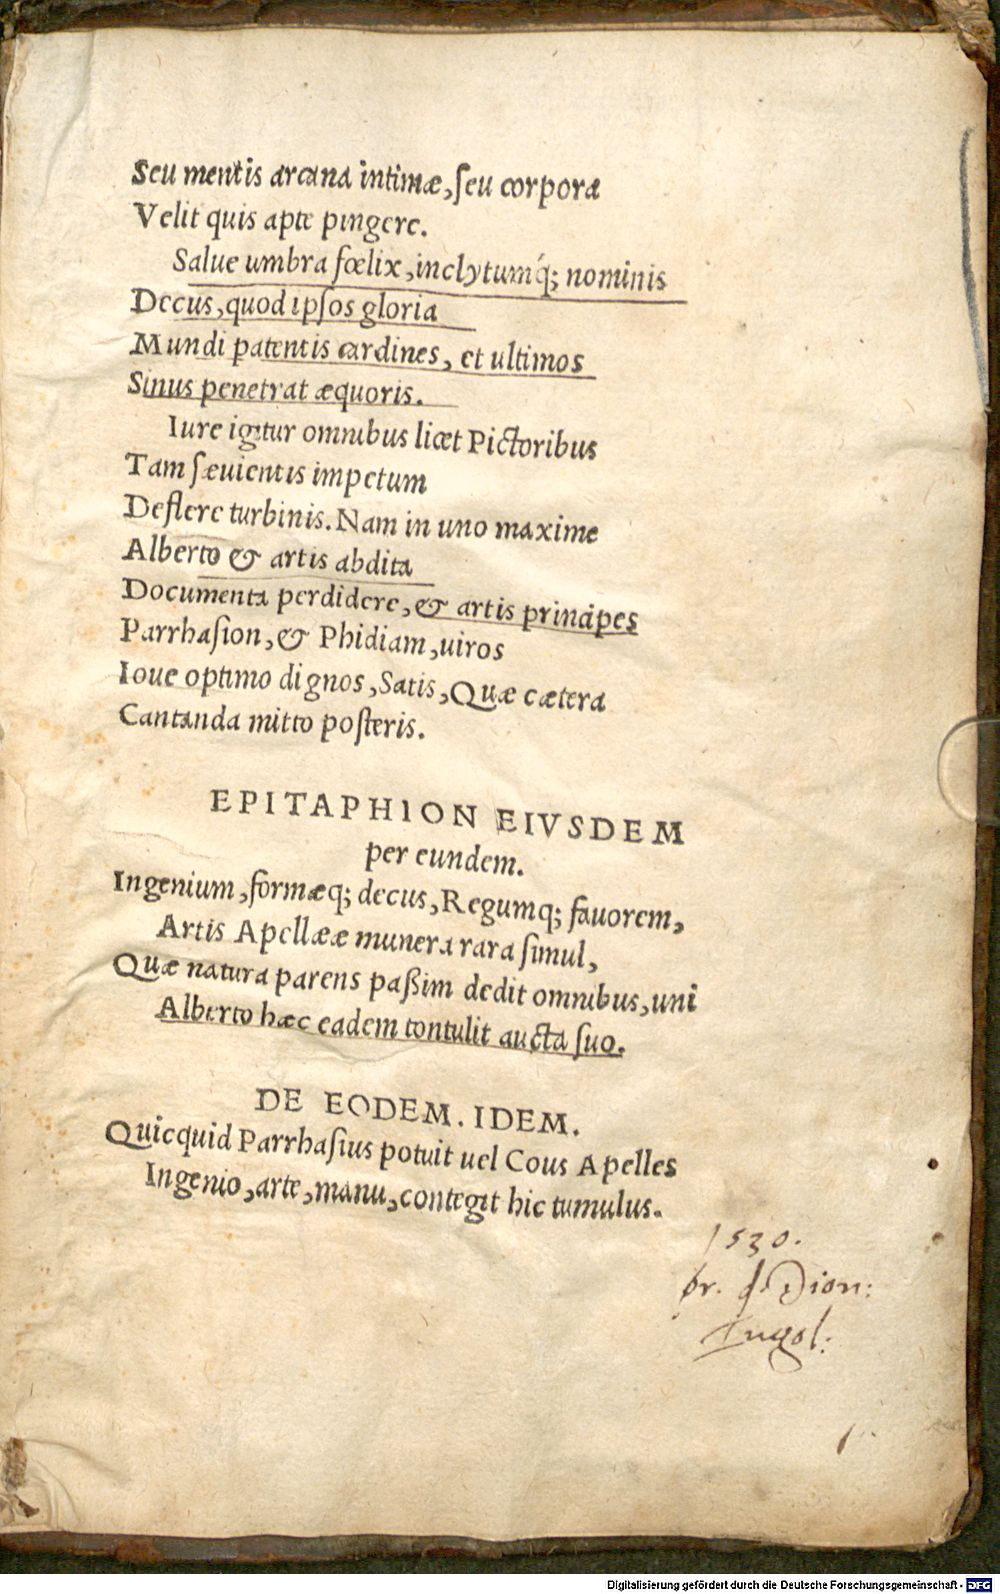 Seu mentis arcana intimæ, ſeu corpora
Velit quis apte pingere.
Salue umbra fœlix, inclytumq́; nominis
Decus, quod ipſos gloria
Mundi patentis cardines, et ultimos
Sinus penetrat æquoris.
Iure igitur omnibus licet Pictoribus
Tam ſæuientis impetum
Deflere turbinis. Nam in uno maxime
Alberto & artis abdita
Documenta perdidere, & artis principes
Parrhaſion, & Phidiam, uiros
Ioue optimo dignos, Satis, Quæ cætera
Cantanda mitto poſteris.
EPITAPHION EIVSDEM
per eundem.
Ingenium, formæq; decus, Regumq; fauorem,
Artis Apellææ munera rara ſimul,
Quæ natura parens paßim dedit omnibus, uni
Alberto hæc eadem contulit aucta ſuo.
DE EODEM. IDEM.
Quicquid Parrhaſius potuit uel Cous Apelles
Ingenio, arte, manu, contegit hic tumulus.
1530.
Dion:
Ingol:
Digitalisierung gefördert durch die Deutsche Forschungsgemeinschaft - DFG